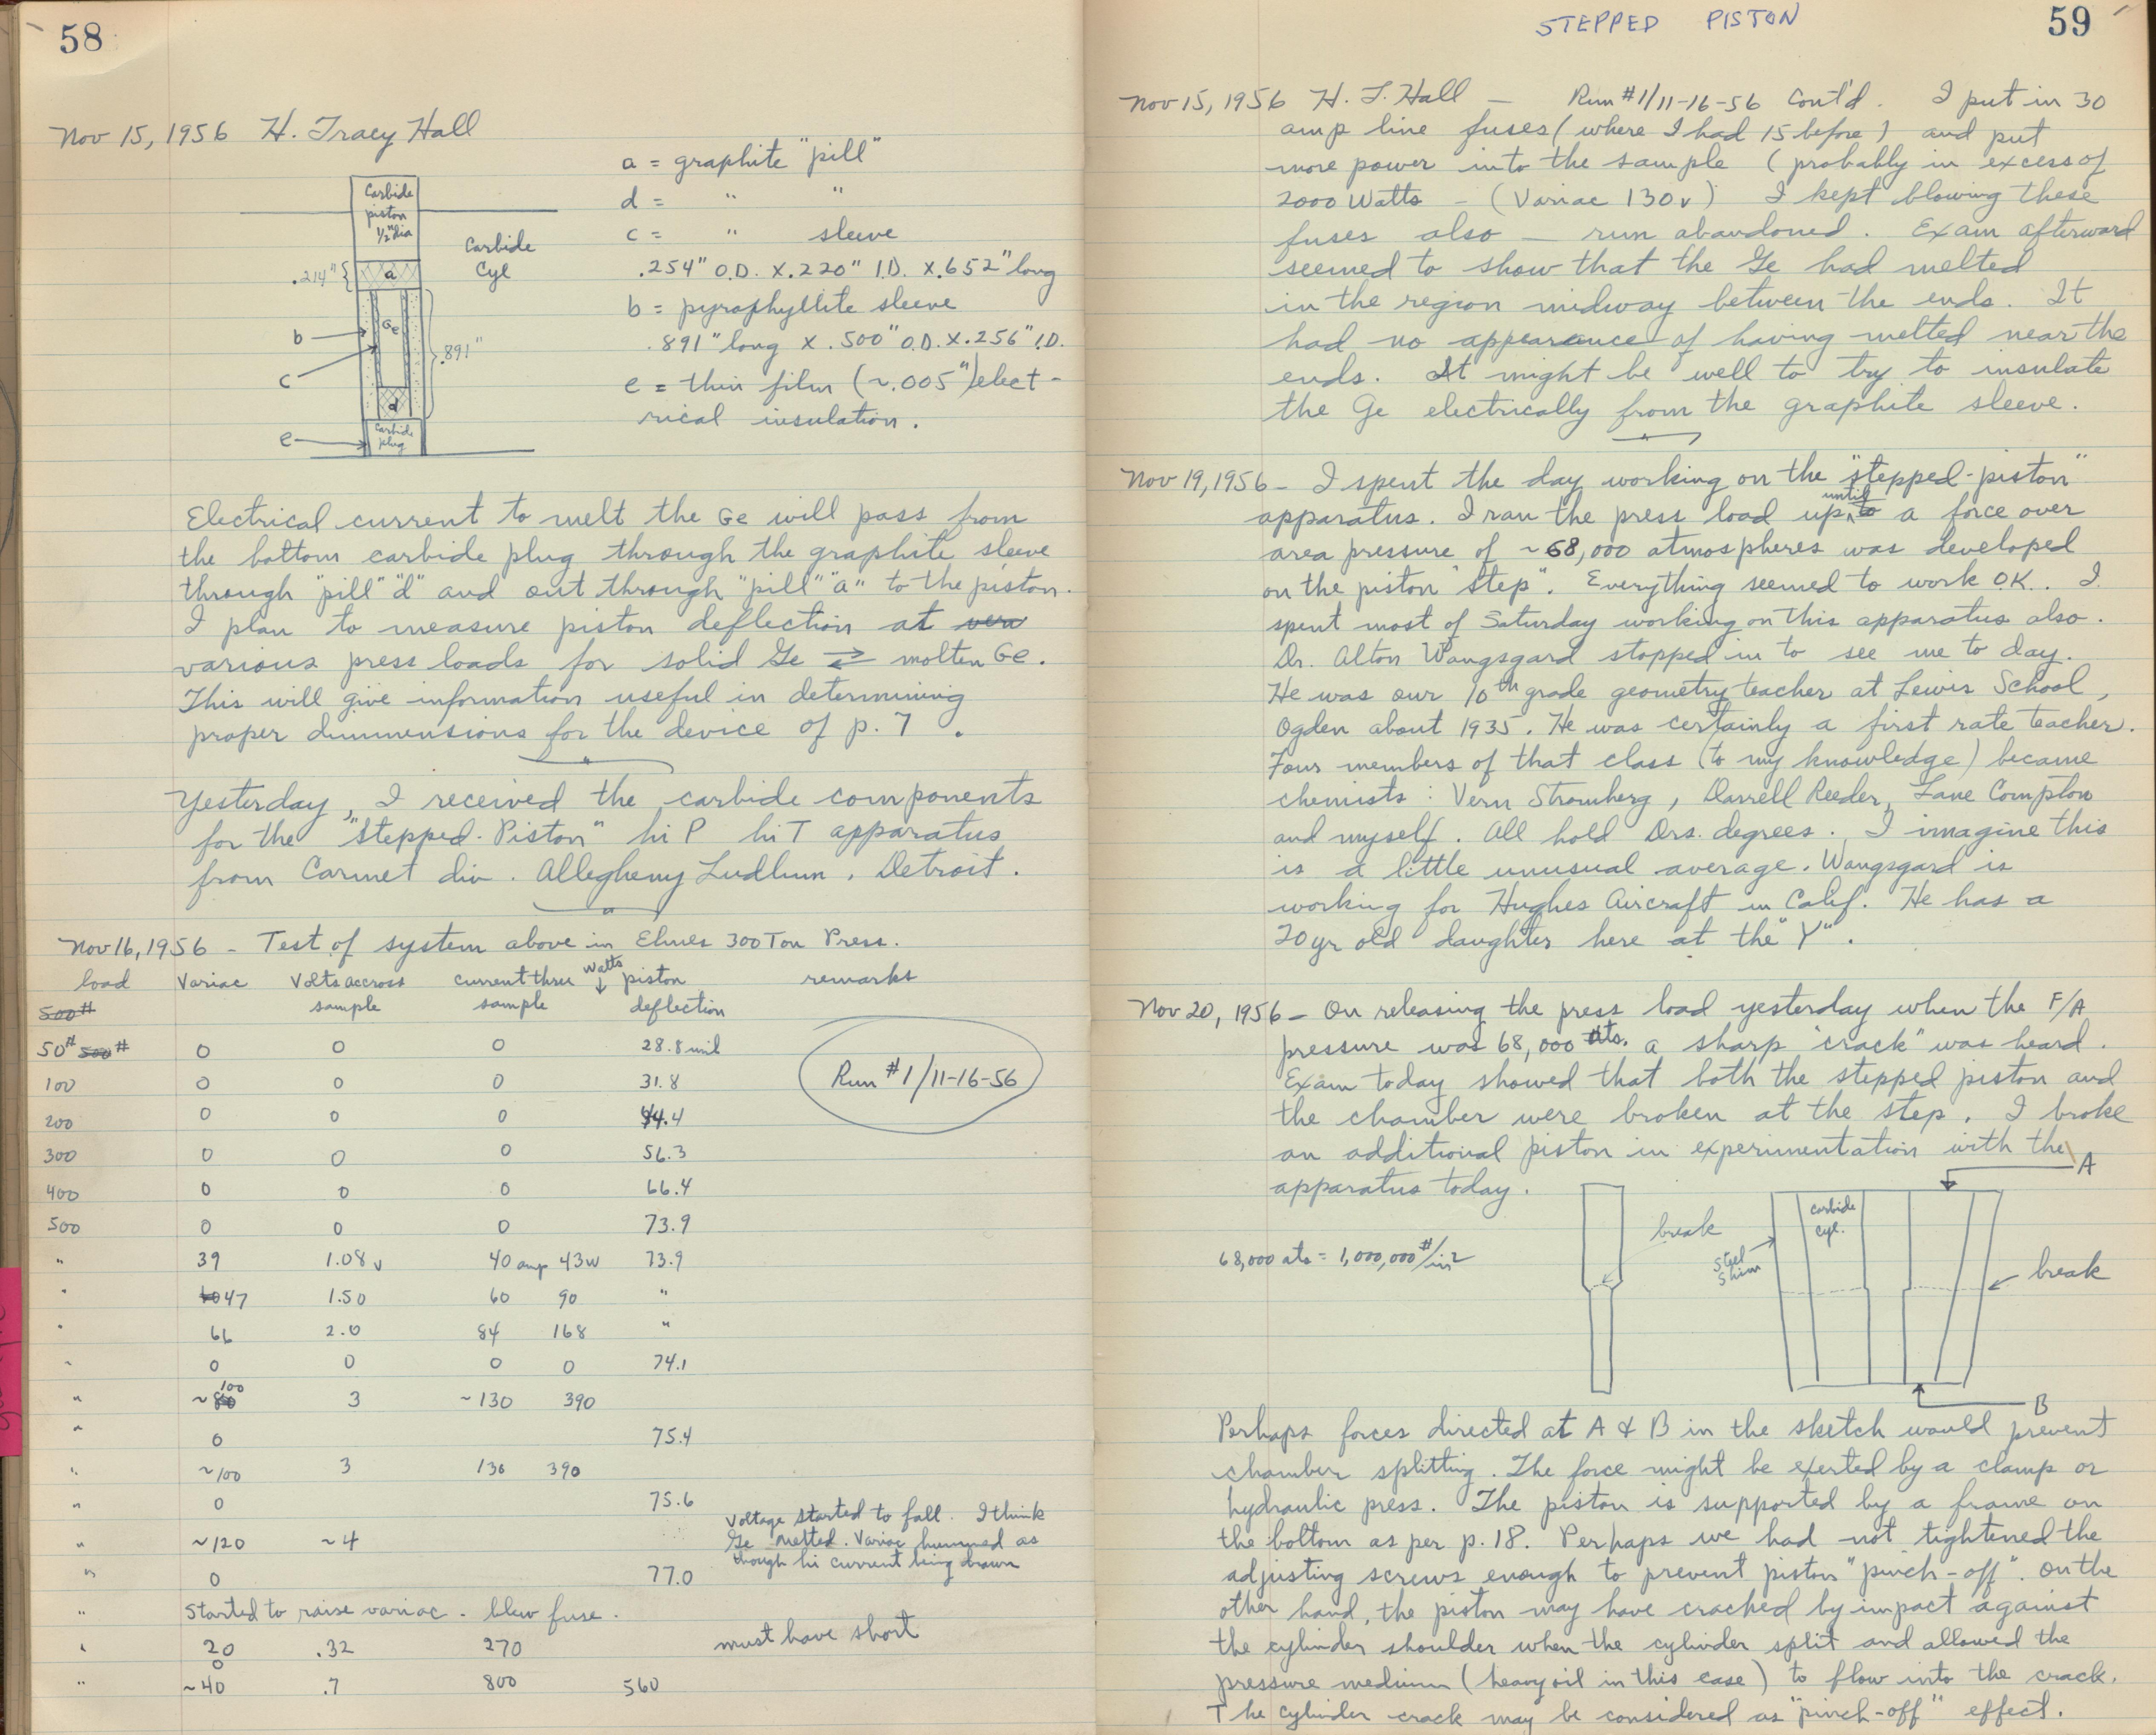 58
Nov 15, 1956 H. Tracy Hall
Carbide
piston
1/2" dia
.214"
a
Carbide
Cyl
b
Ge
c
.891"
d
Carbide
plug
e
a = graphite "pill"
d = " "
c = " sleeve
.254" O.D. X .220" I.D. X .652" long
b = pyrophyllite sleeve
.891" long X .500" O.D. X .256" I.D.
e = thin film (~.005") elect-
rical insulation.
Electrical current to melt the Ge will pass from
the bottom carbide plug through the graphite sleeve
through "pill" "d" and out through "pill" "a" to the piston.
I plan to measure piston deflection at
various press loads for solid Ge ⇄ molten Ge.
This will give information useful in determining
proper dimmensions for the device of p. 7.
Yesterday, I received the carbide components
for the "Stepped-Piston" hi P hi T apparatus
from Carmet div. Allegheny Ludlum, Detroit.
Nov 16, 1956 - Test of system above in Elmes 300 Ton Press.
load Variac Volts accross current thru watts ↓ piston remarks
sample sample deflection
500#
50# 500# 0 0 0 28.8 mil
100 0 0 0 31.8
200 0 0 0 44.4
300 0 0 0 56.3
400 0 0 0 66.4
500 0 0 0 73.9
Run #1/11-16-56
" 39 1.08 v 40 amp 43 w 73.9
" 47 1.50 60 90 "
" 66 2.0 84 168 "
" 0 0 0 0 74.1
" ~80 100 3 ~130 390
" 0 75.4
" ~100 3 130 390
" 0 75.6
Voltage started to fall. I think
Ge melted. Variac hummed as
though hi current being drawn
" ~120 ~4
" 0 77.0
" Started to raise variac. blew fuse.
" 20 .32 270 must have short
0
" ~40 .7 800 560
STEPPED PISTON
59
Nov 15, 1956 H. T. Hall — Run #1/11-16-56 Cont'd. I put in 30
amp line fuses (where I had 15 before) and put
more power into the sample (probably in excess of
2000 Watts - (Variac 130v) I kept blowing these
fuses also — run abandoned. Exam afterward
seemed to show that the Ge had melted
in the region midway between the ends. It
had no appearance of having melted near the
ends. It might be well to try to insulate
the Ge electrically from the graphite sleeve.
Nov 19, 1956 - I spent the day working on the "stepped-piston"
apparatus. I ran the press load up until to a force over
area pressure of ~68,000 atmospheres was developed
on the piston "step". Everything seemed to work OK. I
spent most of Saturday working on this apparatus also.
Dr. Alton Wangsgard stopped in to see me to day.
He was our 10th grade geometry teacher at Lewis School,
Ogden about 1935. He was certainly a first rate teacher.
Four members of that class (to my knowledge) became
chemists: Vern Stromberg, Darrell Reeder, Lane Compton
and myself. All hold Drs. degrees. I imagine this
is a little unusual average. Wangsgard is
working for Hughes Aircraft in Calif. He has a
20 yr old daughter here at the "Y".
Nov 20, 1956 - On releasing the press load yesterday when the F/A
pressure was 68,000 ats. a sharp "crack" was heard.
Exam today showed that both the stepped piston and
the chamber were broken at the step. I broke
an additional piston in experimentation with the
apparatus today.
A
68,000 ats = 1,000,000 #/in2
break
steel
shim
carbide
cyl.
break
B
Perhaps forces directed at A & B in the sketch would prevent
chamber splitting. The force might be exerted by a clamp or
hydraulic press. The piston is supported by a frame on
the bottom as per p. 18. Perhaps we had not tightened the
adjusting screws enough to prevent piston "pinch-off". On the
other hand, the piston may have cracked by impact against
the cylinder shoulder when the cylinder split and allowed the
pressure medium (heavy oil in this case) to flow into the crack.
The cylinder crack may be considered as "pinch-off" effect.